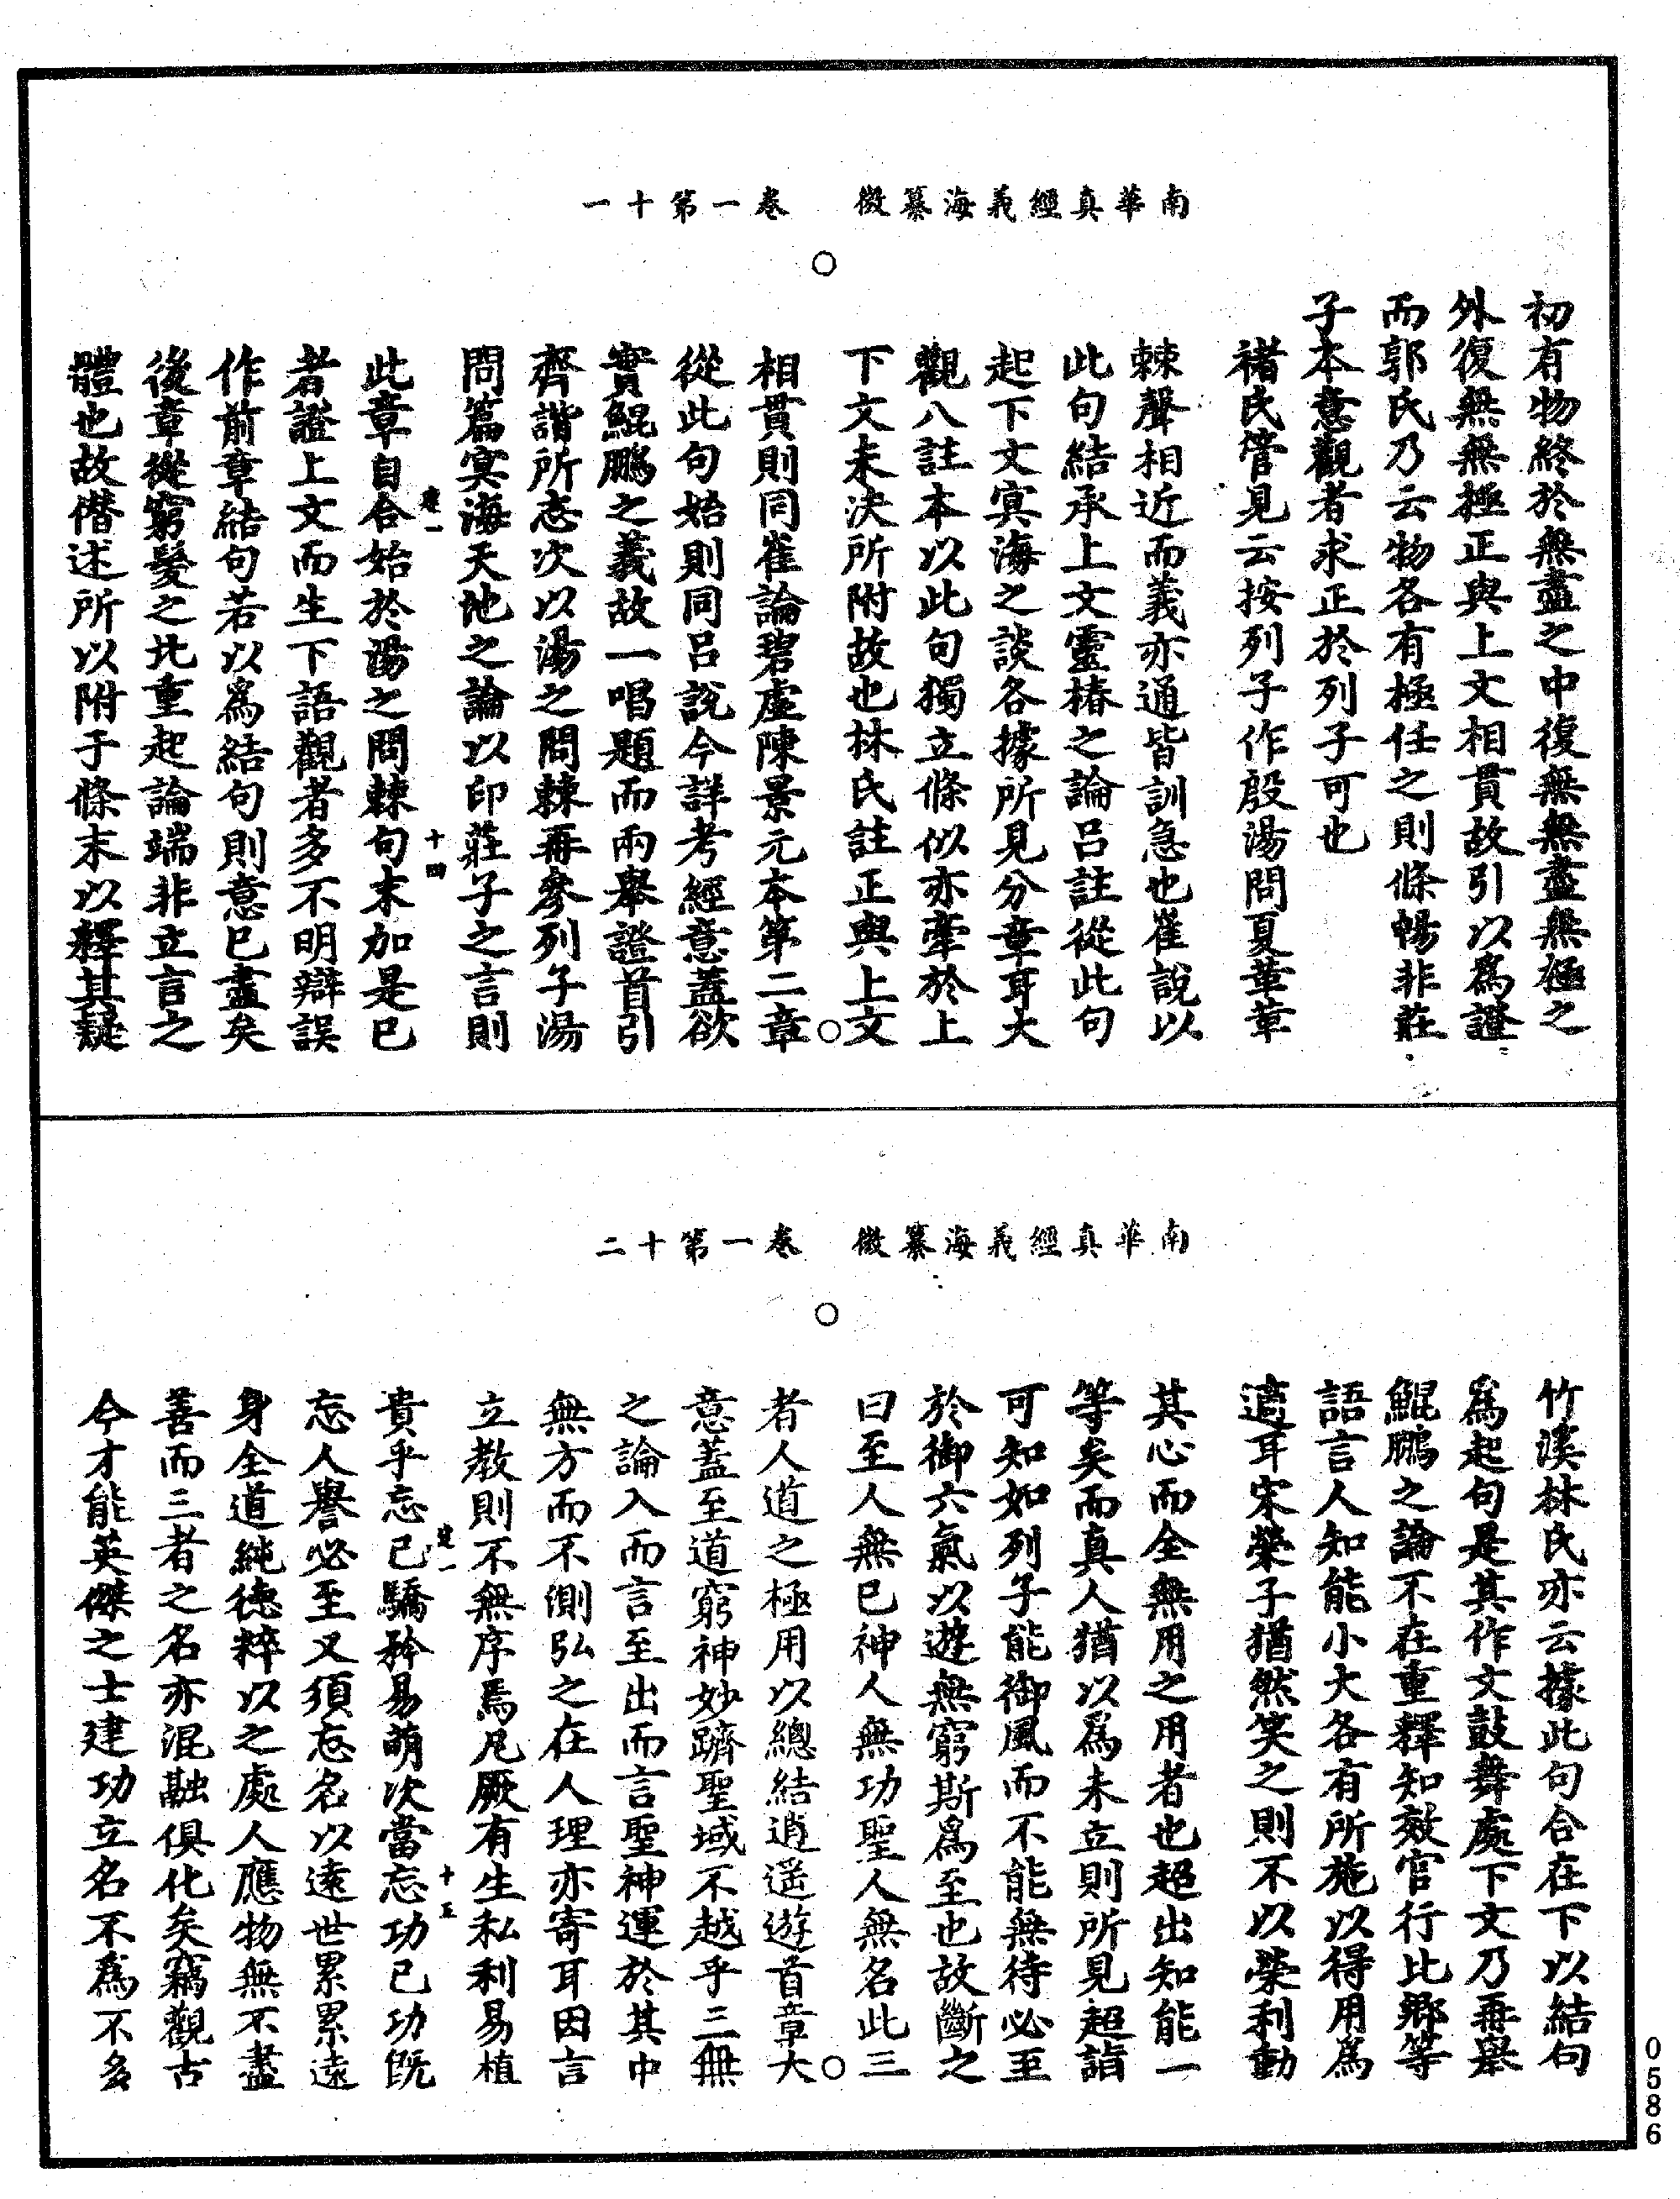 南華真經義海纂微　卷一第十一
初有物終於無盡之中復無無盡無極之
外復無無極正與上文相貫故引以爲證
而郭氏乃云物各有極任之則條暢非莊
子本意觀者求正於列子可也
褚氏管見云按列子作殷湯問夏革革
棘聲相近而義亦通皆訓急也崔說以
此句結承上文靈椿之論呂註從此句
起下文冥海之談各據所見分章耳大
觀八註本以此句獨立條似亦牽於上
下文未決所附故也林氏註正與上文
相貫則同崔論碧虛陳景元本第二章
從此句始則同呂說今詳考經意蓋欲
實鯤鵬之義故一唱題而兩舉證首引
齊諧所志次以湯之問棘再參列子湯
問篇冥海天池之論以印莊子之言則
建一　十四
此章自合始於湯之問棘句末加是已
者證上文而生下語觀者多不明辯誤
作前章結句若以爲結句則意已盡矣
後章從窮髮之北重起論端非立言之
體也故僭述所以附于條末以釋其疑
南華真經義海纂微　卷一第十二
竹溪林氏亦云據此句合在下以結句
爲起句是其作文鼓舞處下文乃再舉
鯤鵬之論不在重釋知效官行比鄉等
語言人知能小大各有所施以得用爲
適耳宋榮子猶然笑之則不以榮利動
其心而全無用之用者也超出知能一
等矣而真人猶以爲未立則所見超詣
可知如列子能御風而不能無待必至
於御六氣以遊無窮斯爲至也故斷之
曰至人無已神人無功聖人無名此三
者人道之極用以總結逍遥遊首章大
意蓋至道窮神妙躋聖域不越乎三無
之論入而言至出而言聖神運於其中
無方而不側弘之在人理亦寄耳因言
立教則不無序焉凡厥有生私利易植
建一　十五
貴乎忘已驕矜易萌次當忘功已功旣
忘人譽必至又須忘名以遠世累累遠
身全道純德粹以之處人應物無不盡
善而三者之名亦混融俱化矣竊觀古
今才能英傑之士建功立名不爲不多
0586